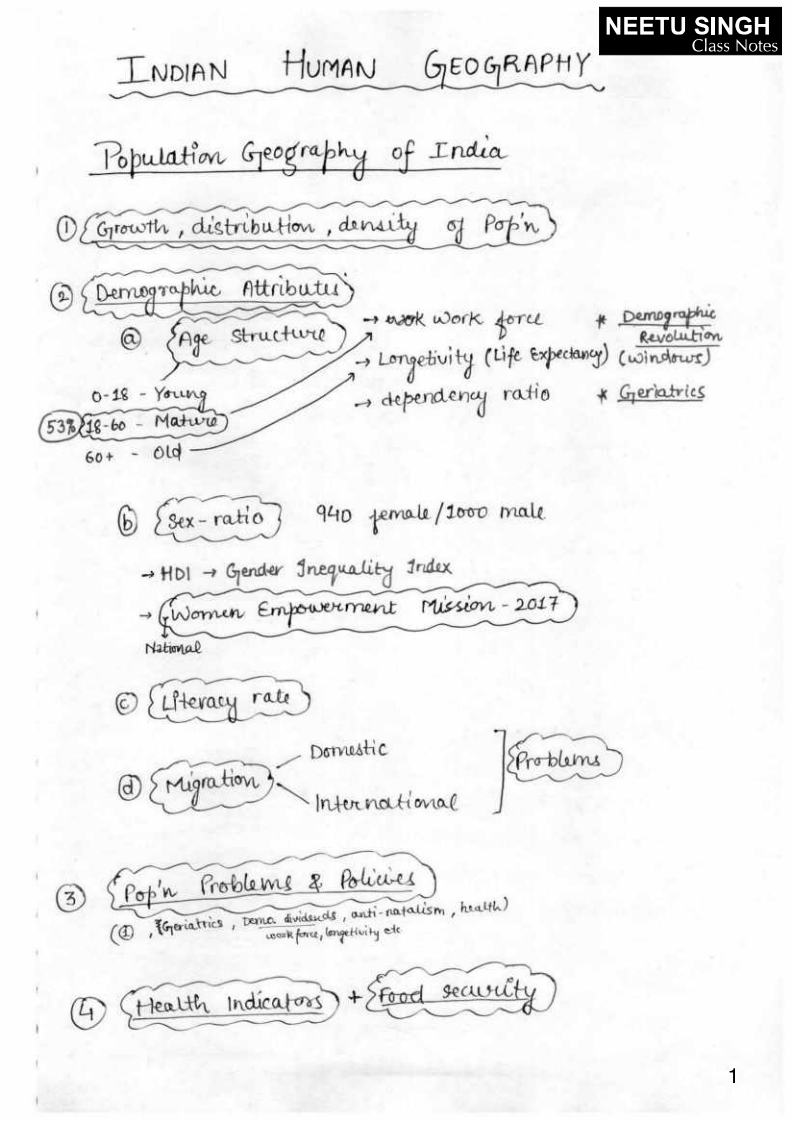 NEETU SINGH
Class Notes
INDIAN HUMAN GEOGRAPHY
Population Geography of India
① Growth, distribution, density of Pop'n
② Demographic Attributes
ⓐ Age Structure
→ work force
→ Longetivity (Life Expectancy)
→ dependency ratio
* Demographic Revolution (windows)
* Geriatrics
0-18 - Young
53% 18-60 - Mature
60+ - Old
ⓑ Sex-ratio 940 female/1000 male
→ HDI → Gender Inequality Index
→ Women Empowerment Mission - 2017
National
ⓒ Literacy rate
ⓓ Migration
Domestic
International
Problems
③ Pop'n Problems & Policies
(ⓓ, Geriatrics, Demo. dividends, anti-natalism, health)
work force, longetivity etc
④ Health Indicators + Food security
1